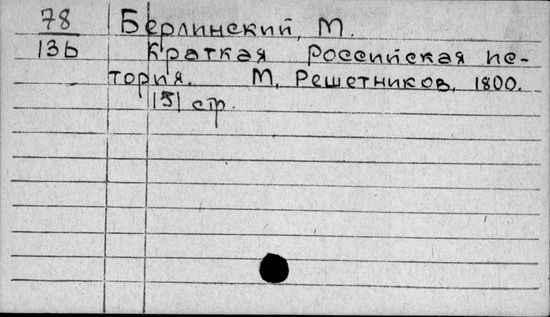 78 Берлинский, М.
13б Краткая Российская ис-
тория. М, Решетников, 1800.
151 стр.